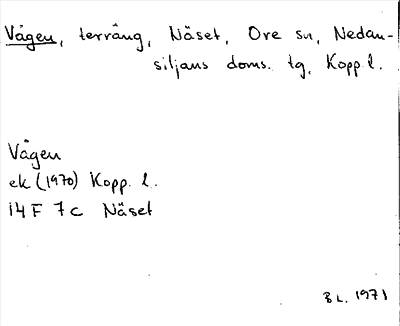 Vågen, terräng, Näset, Ore sn, Nedan-
siljans doms. tg, Kopp l.
Vågen
ek (1970) Kopp. l.
14 F 7c Näset
BL. 1971